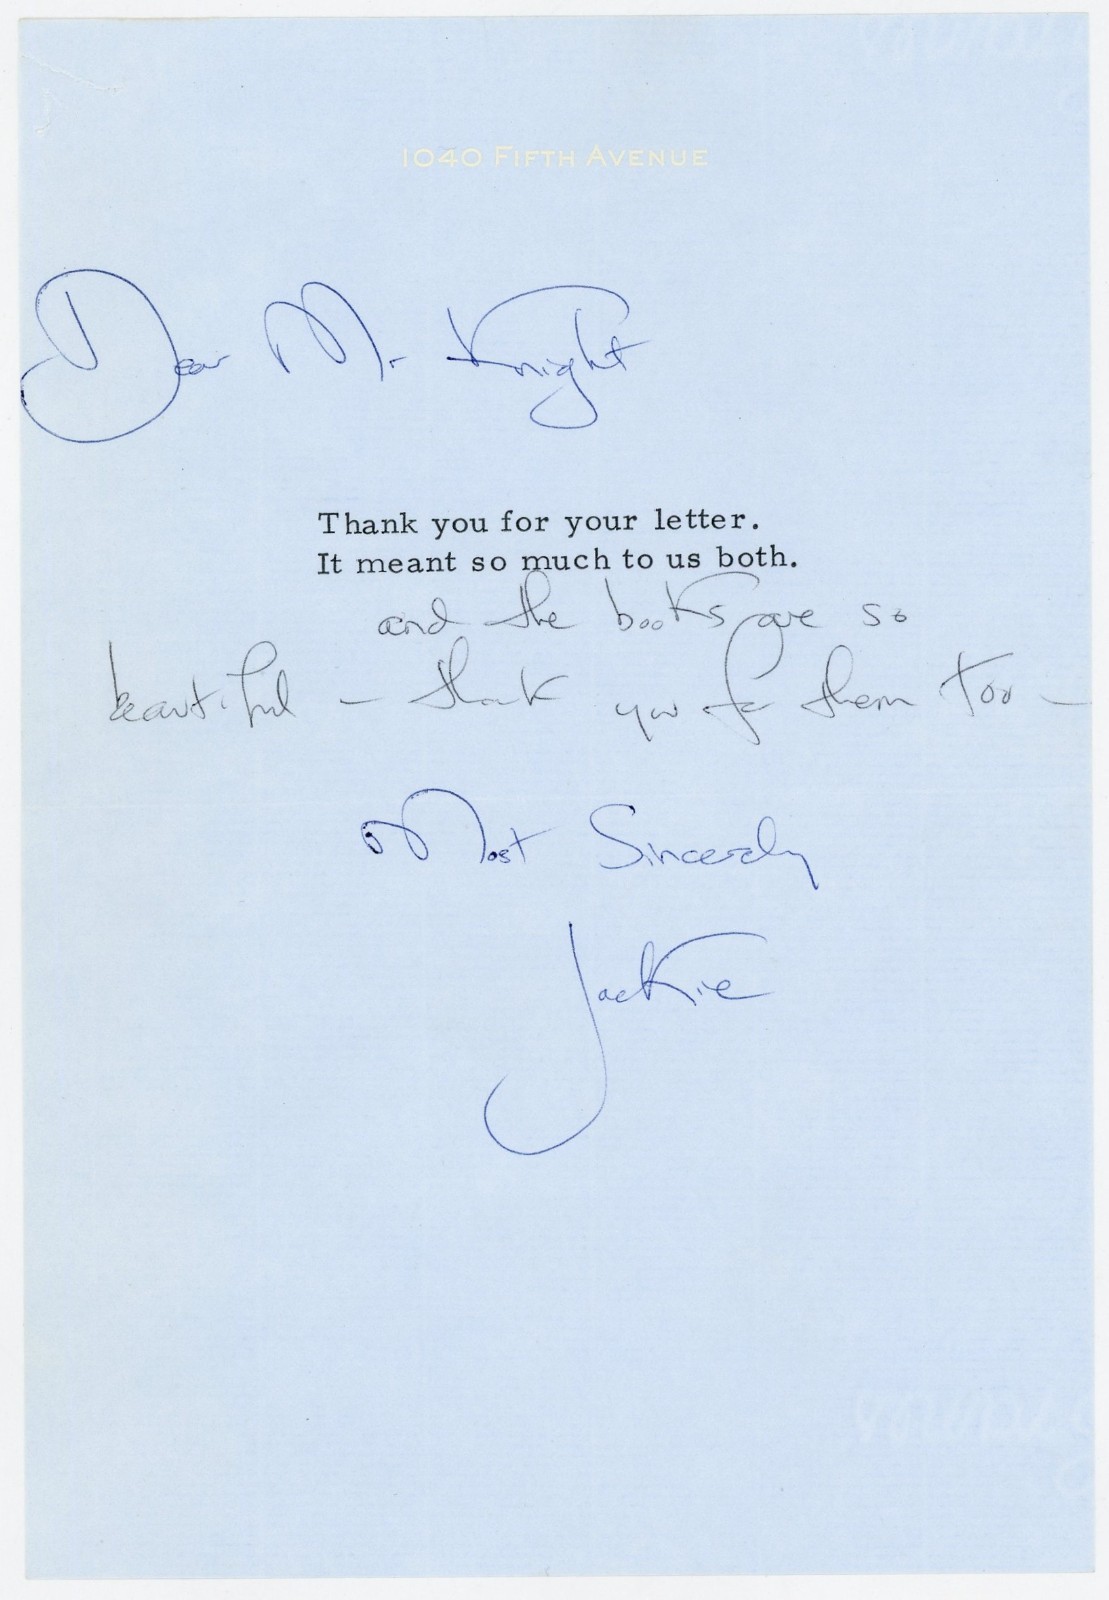 1040 FIFTH AVENUE
Dear Mr Knight
Thank you for your letter.
It meant so much to us both.
and the books are so
beautiful – thank you for them too –
Most Sincerely
Jackie